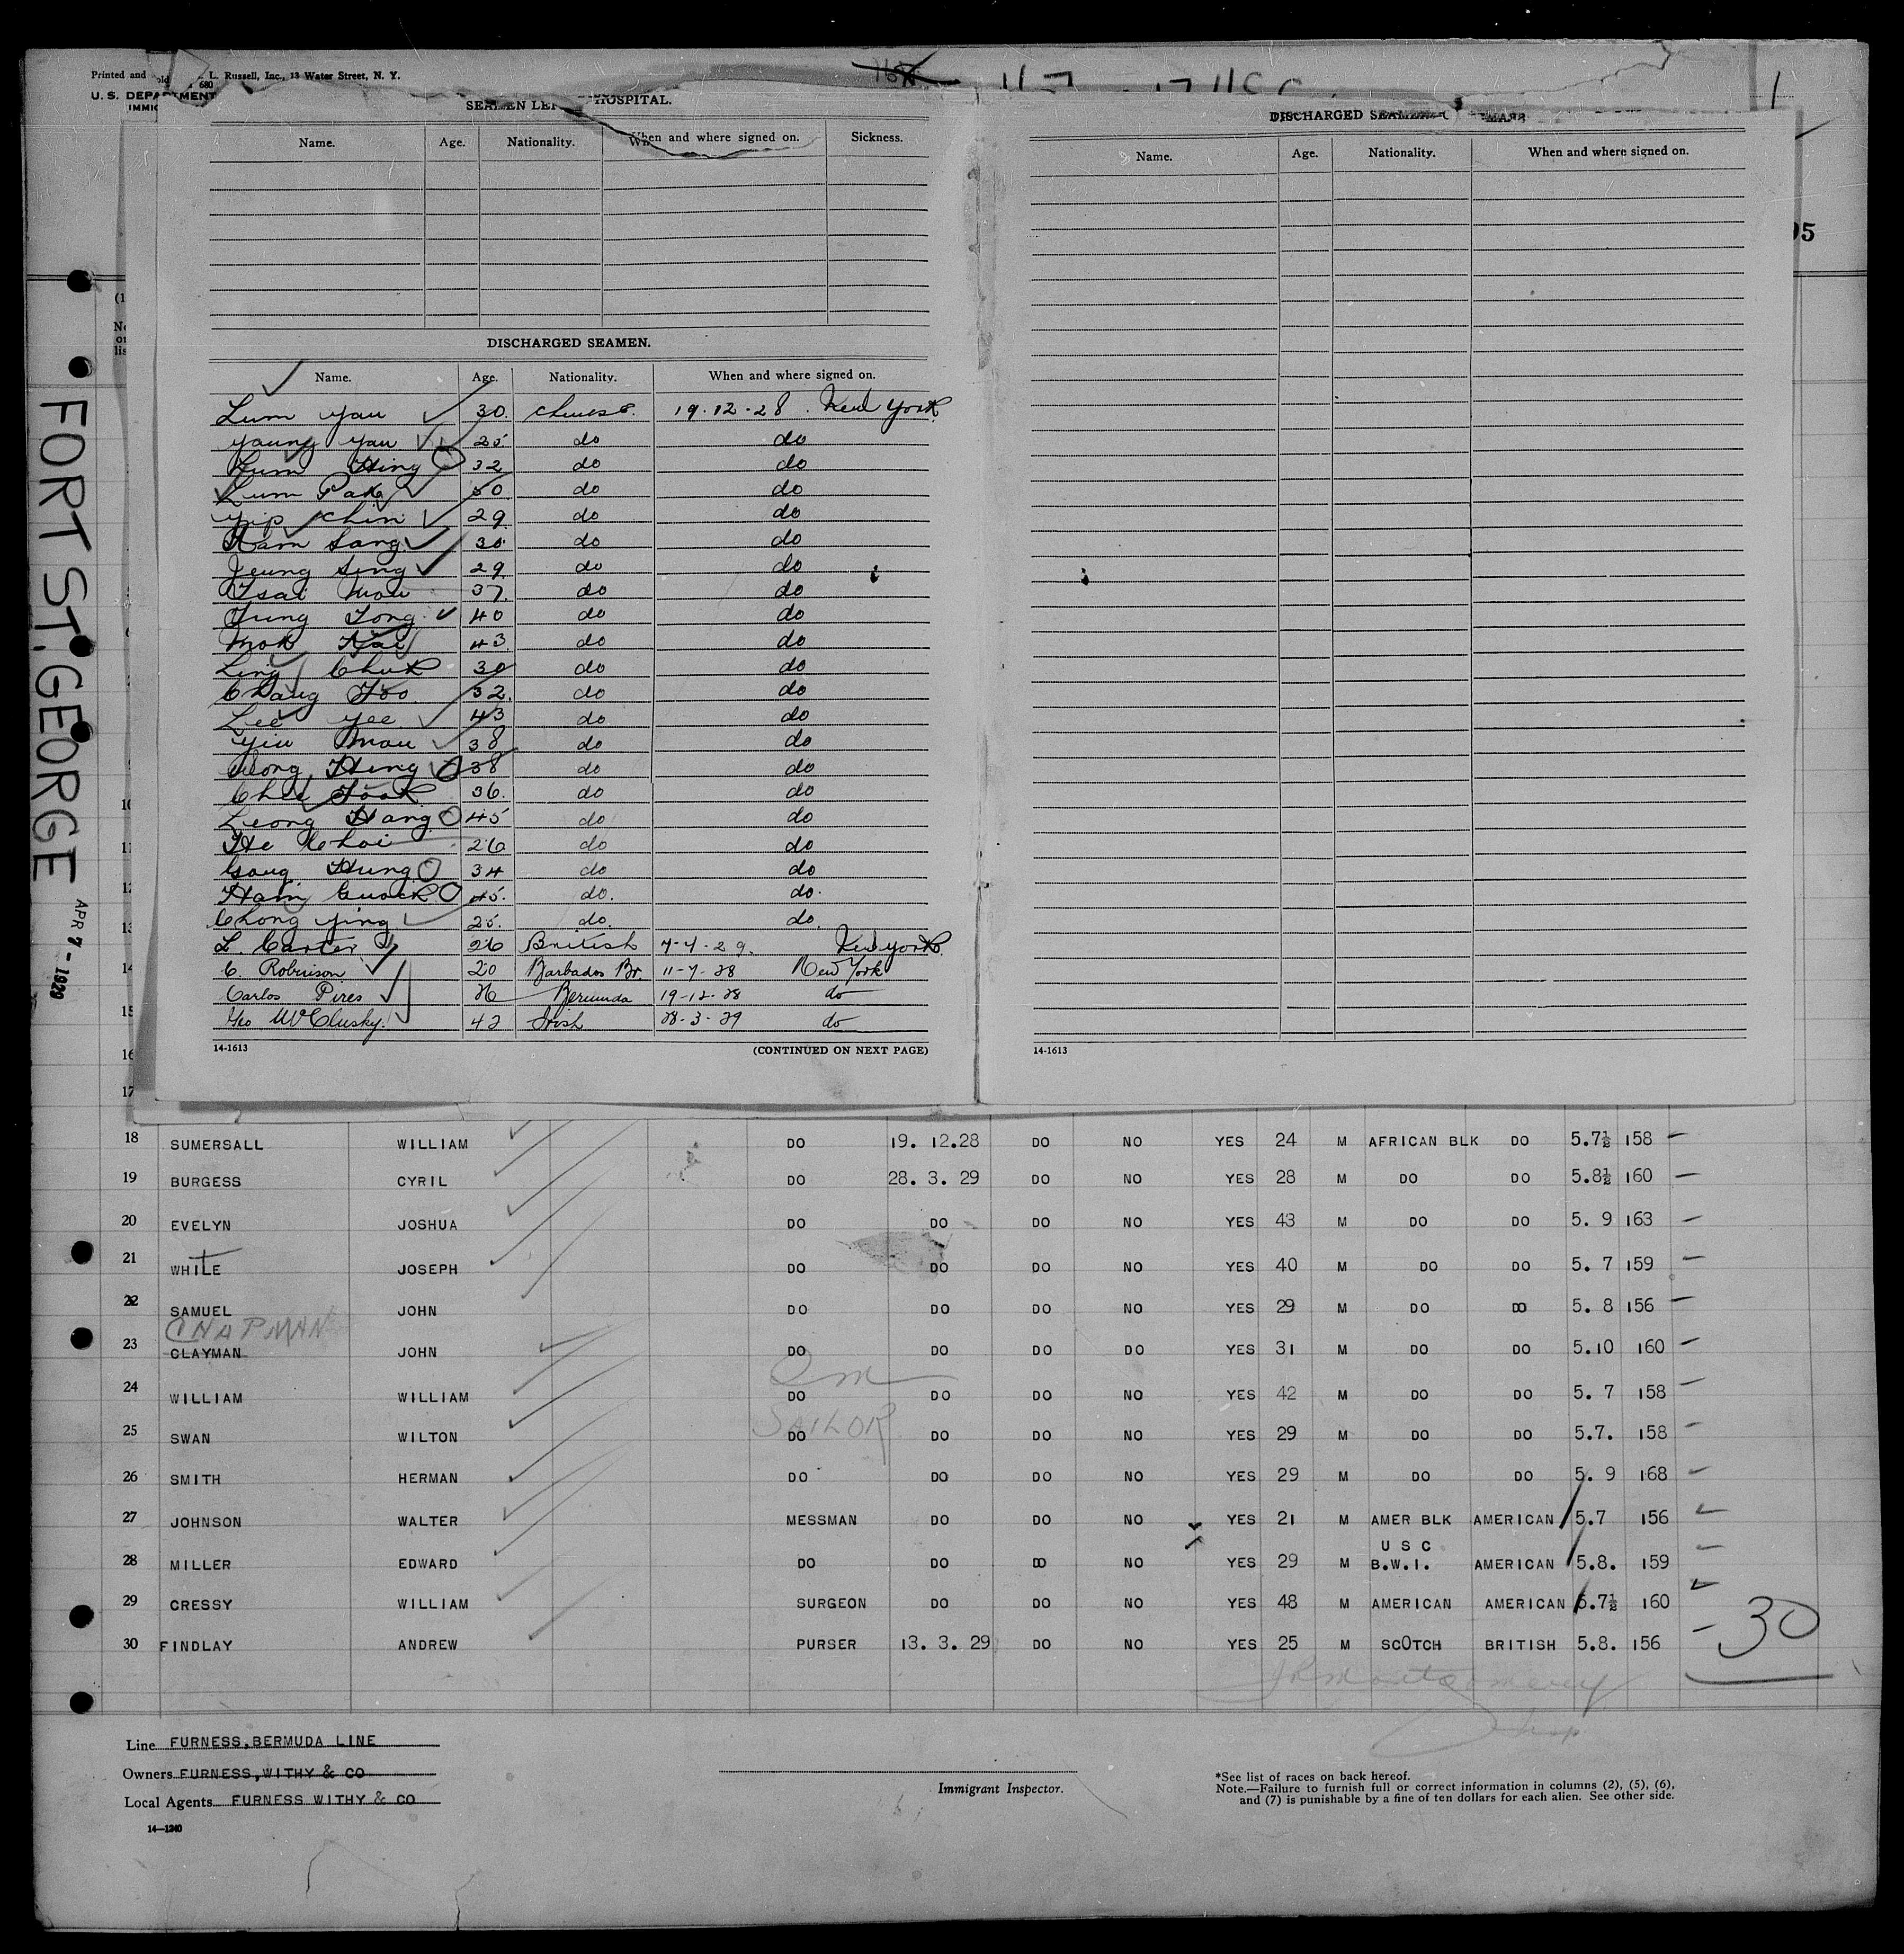 Printed and L. Russell, Inc., 13 Water Street, N. Y.
680
U. S. DEPARTMENT
IMMIG
SEAMEN LEFT HOSPITAL.
Name. Age. Nationality. When and where signed on. Sickness.
DISCHARGED SEAMEN.
Name. Age. Nationality. When and where signed on.
Lum Yau 30. Chinese. 19.12.28. New York
Young Yau 25 do do
Lum Hing 32 do do
Lum Pak 50 do do
Yip Chin 29 do do
Kam Sang 30 do do
Jeung Sing 29 do do
Tsai Mou 37. do do
Fung Tong 40 do do
Mok Kai 43 do do
Ling Chuk 30 do do
Chang Foo 32. do do
Lee Yee 43 do do
Yiu Mou 38 do do
Wong Hing 38 do do
Chee Fook 36. do do
Leong Hang 45 do do
He Choi 26 do do
Gong Hung 34 do do
Ham Guock 45. do. do.
Chong Ying 25. do. do.
L. Carter 26 British 4-4-29. New York
C. Robinson 20 Barbados Br. 11-7-28 New York
Carlos Pires 26 Bermuda 19-12-28 do
Geo McClusky. 42 Irish 28-3-29 do
14-1613 (CONTINUED ON NEXT PAGE)
DISCHARGED SEAMEN
Name. Age. Nationality. When and where signed on.
14-1613
95
FORT ST. GEORGE
APR 7 - 1929
10
11
12
13
14
15
16
17
18 SUMERSALL WILLIAM DO 19. 12.28 DO NO YES 24 M AFRICAN BLK DO 5.7½ 158
19 BURGESS CYRIL DO 28. 3. 29 DO NO YES 28 M DO DO 5.8½ 160
20 EVELYN JOSHUA DO DO DO NO YES 43 M DO DO 5. 9 163
21 WHITE JOSEPH DO DO DO NO YES 40 M DO DO 5. 7 159
22 SAMUEL JOHN DO DO DO NO YES 29 M DO DO 5. 8 156
CHAPMAN
23 CLAYMAN JOHN DO DO DO DO YES 31 M DO DO 5.10 160
24 WILLIAM WILLIAM DO DO DO NO YES 42 M DO DO 5. 7 158
SAILOR
25 SWAN WILTON DO DO DO NO YES 29 M DO DO 5.7. 158
26 SMITH HERMAN DO DO DO NO YES 29 M DO DO 5. 9 168
27 JOHNSON WALTER MESSMAN DO DO NO YES 21 M AMER BLK AMERICAN 5.7 156
U S C
28 MILLER EDWARD DO DO DO NO YES 29 M B.W.I. AMERICAN 5.8. 159
29 CRESSY WILLIAM SURGEON DO DO NO YES 48 M AMERICAN AMERICAN 5.7½ 160
30 FINDLAY ANDREW PURSER 13. 3. 29 DO NO YES 25 M SCOTCH BRITISH 5.8. 156
30
JR Montgomery
Insp
Line FURNESS,BERMUDA LINE
Owners FURNESS,WITHY & CO
Local Agents FURNESS WITHY & CO
14—1240
Immigrant Inspector.
*See list of races on back hereof.
Note.—Failure to furnish full or correct information in columns (2), (5), (6),
and (7) is punishable by a fine of ten dollars for each alien. See other side.